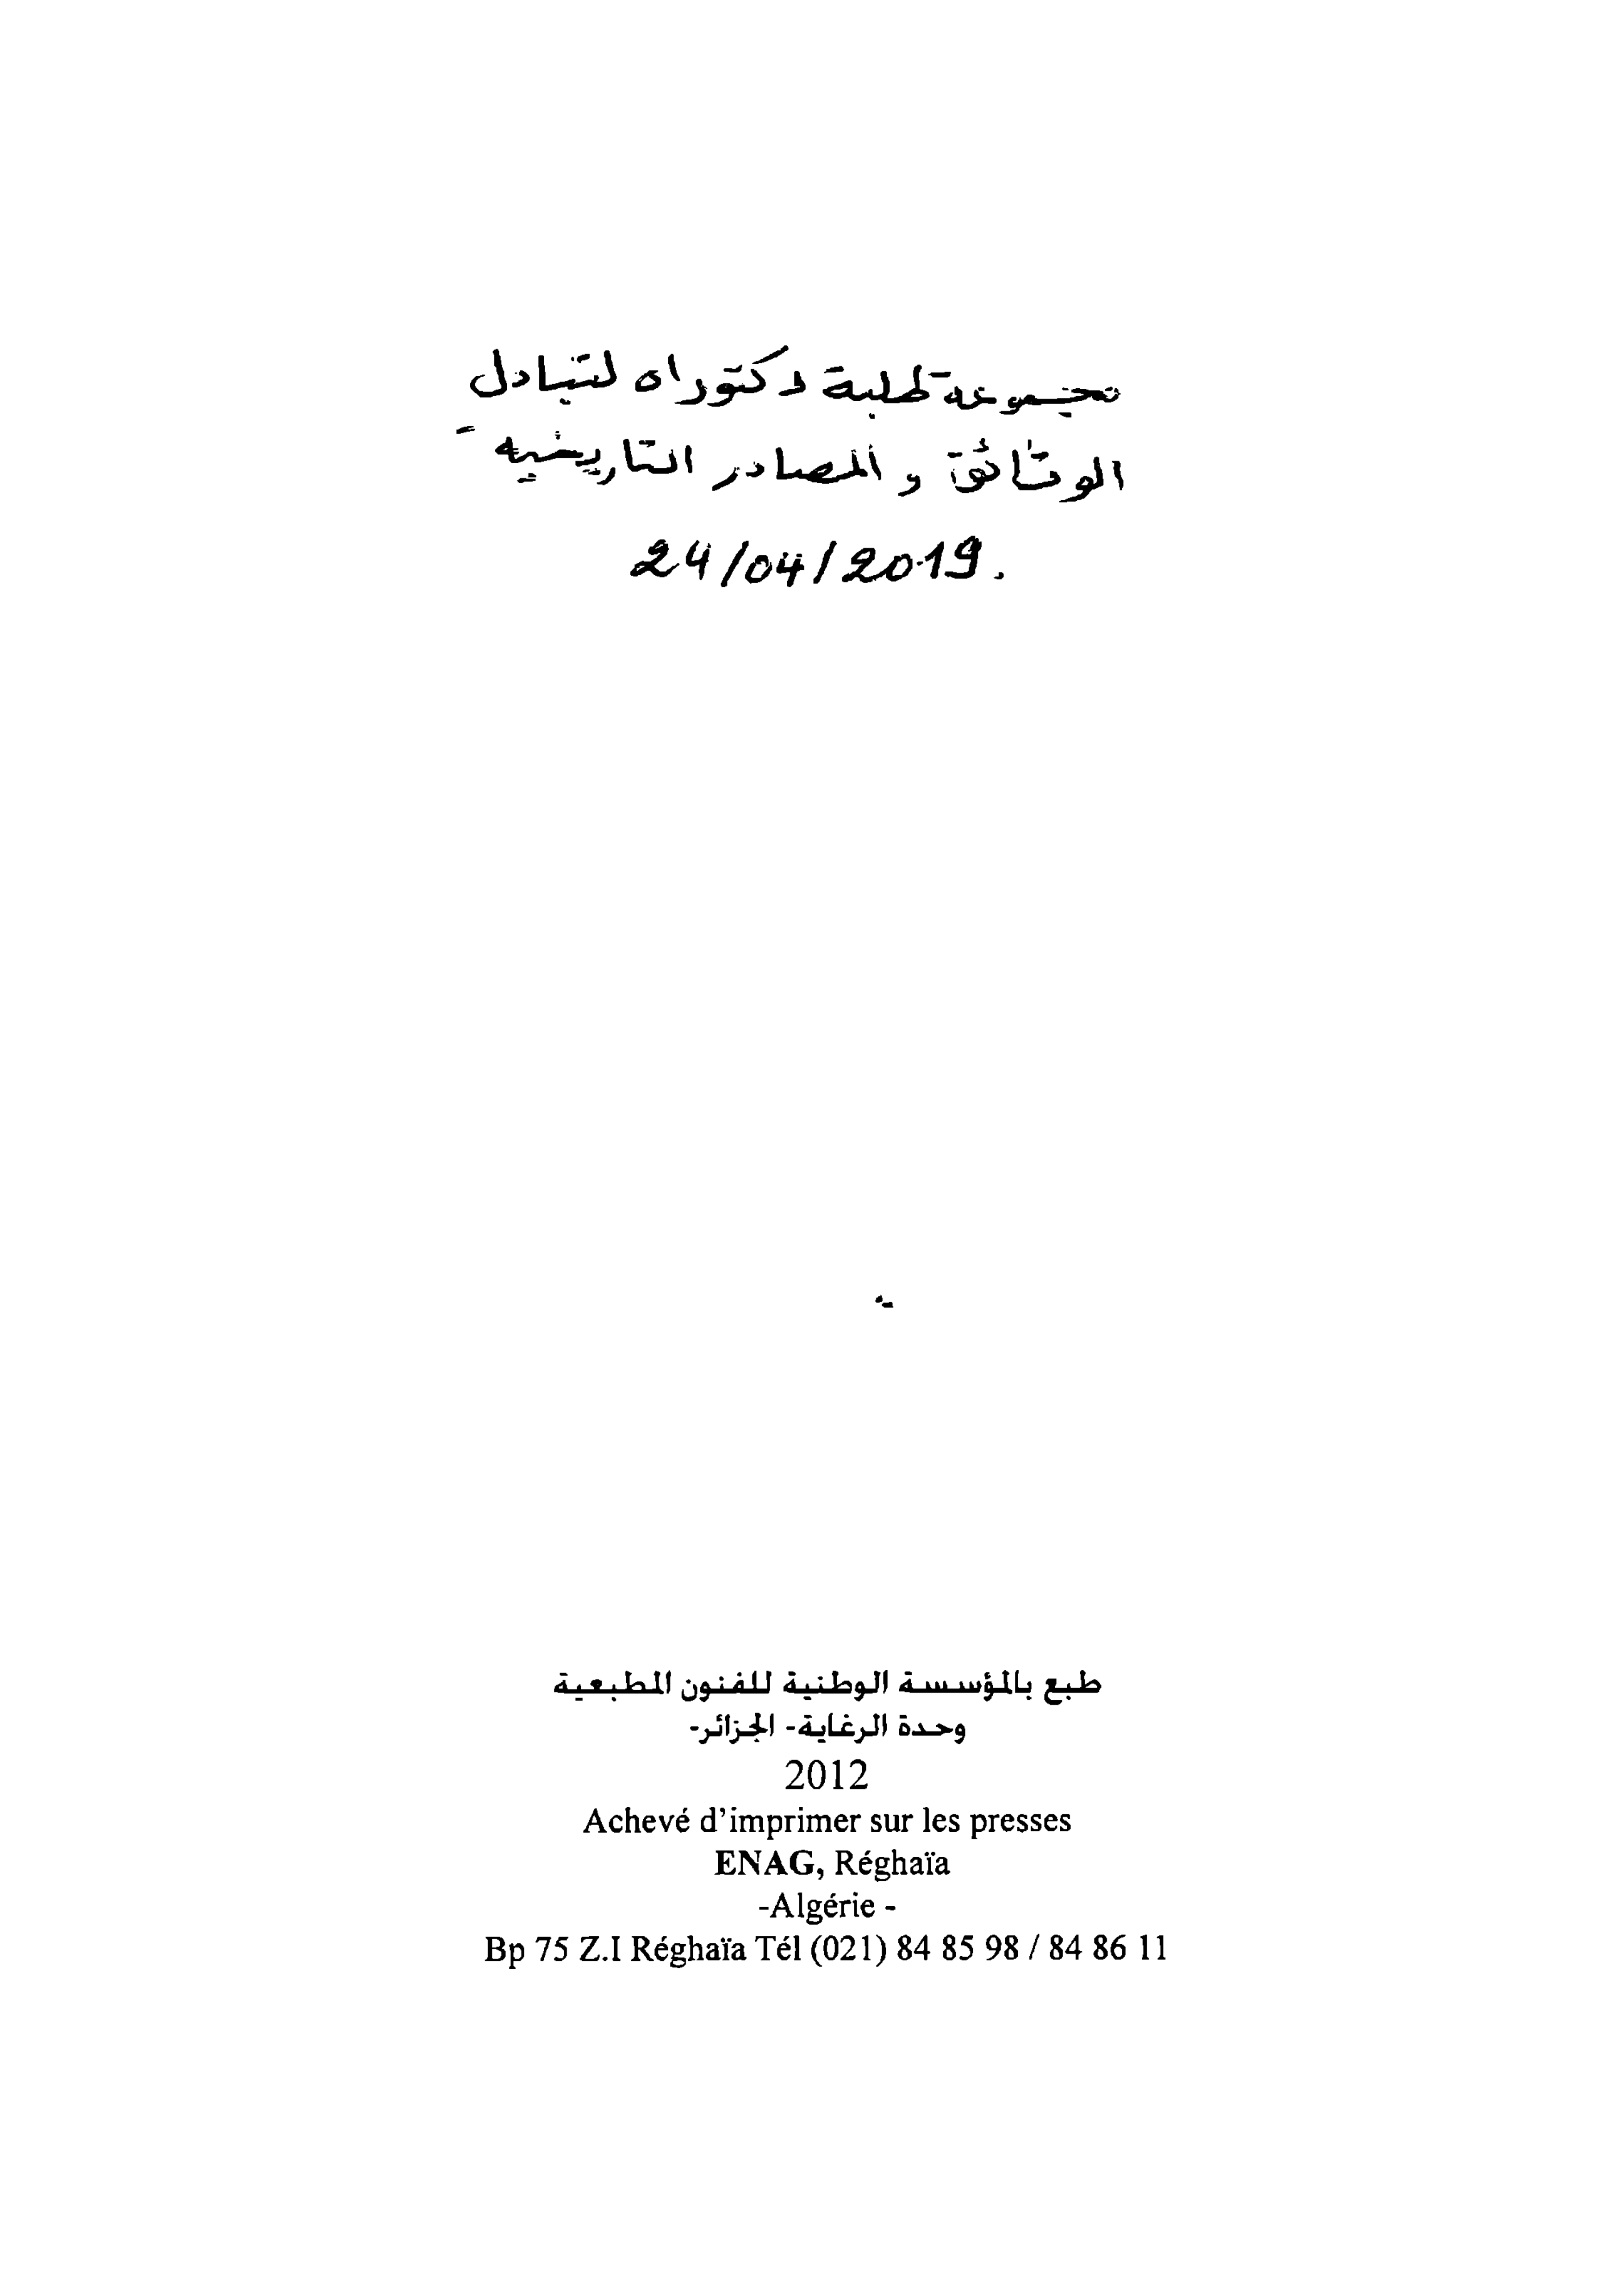 مجموعة طلبة دكتوراه لتبادل
الوثائق و المصادر التاريخية
24/04/2019.
طبع بالمؤسسة الوطنية للفنون المطبعية
وحدة الرغاية- الجزائر-
2012
Achevé d'imprimer sur les presses
ENAG, Réghaïa
-Algérie -
Bp 75 Z.I Réghaïa Tél (021) 84 85 98 / 84 86 11